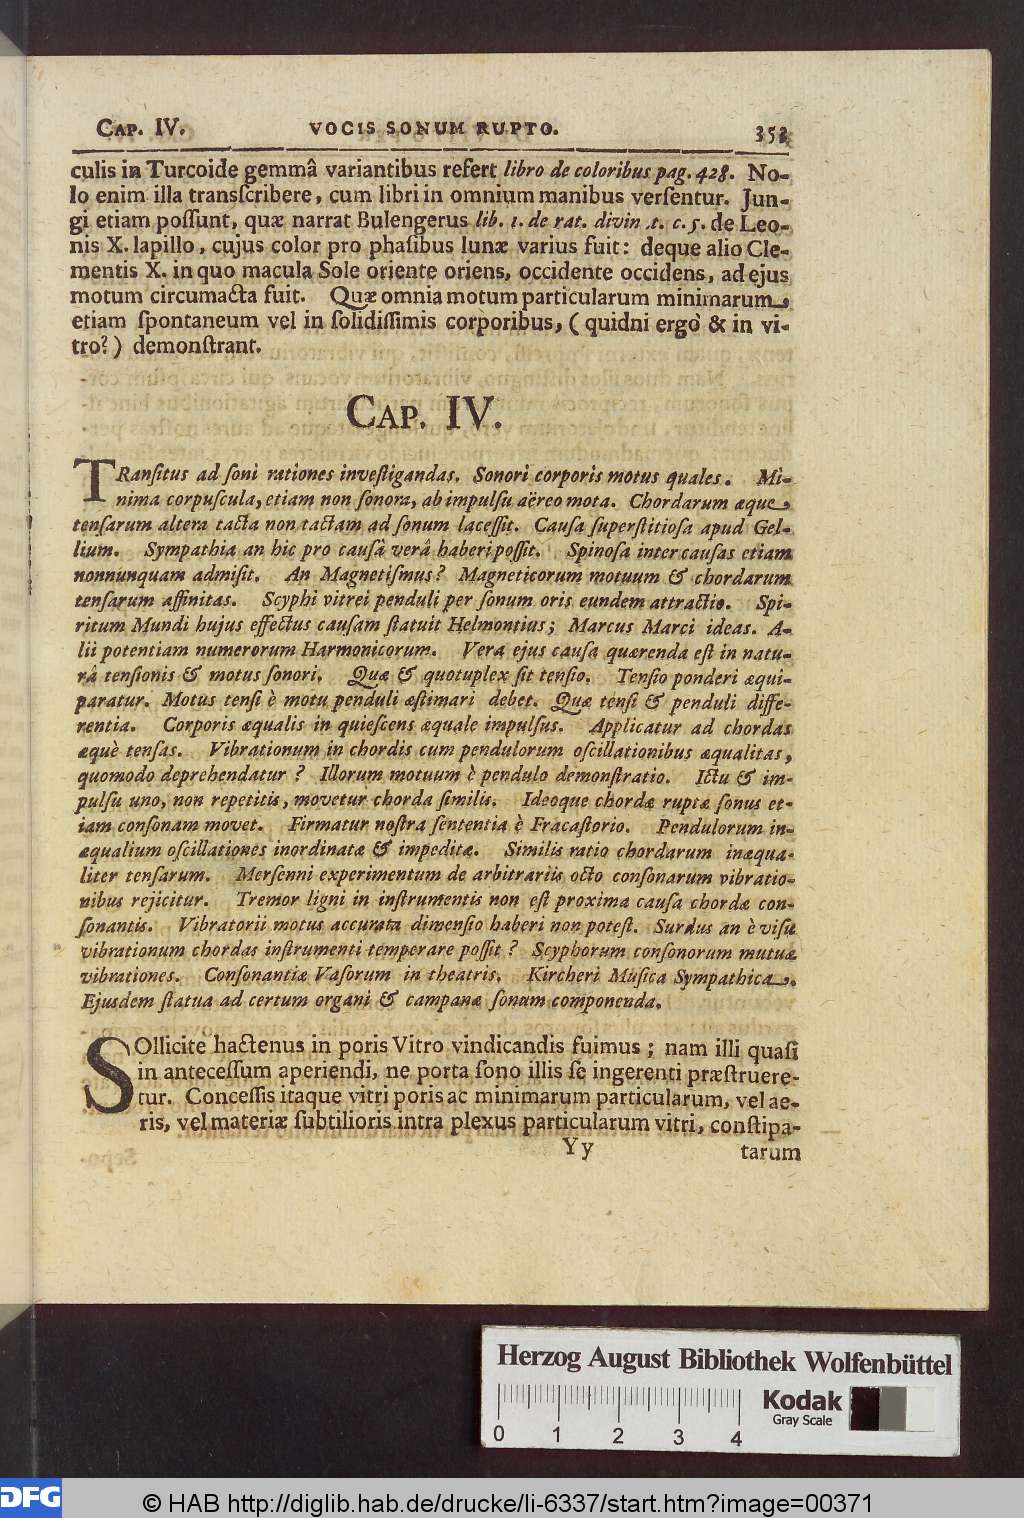 CAP. IV. VOCIS SONUM RUPTO. 353
culis in Turcoide gemmâ variantibus refert libro de coloribus pag. 428. No-
lo enim illa transſcribere, cum libri in omnium manibus verſentur. Jun-
gi etiam poſſunt, quæ narrat Bulengerus lib. 1. de rat. divin .t. c. 5. de Leo-
nis X. lapillo, cujus color pro phaſibus lunæ varius fuit: deque alio Cle-
mentis X. in quo macula Sole oriente oriens, occidente occidens, ad ejus
motum circumacta fuit. Quæ omnia motum particularum minimarum,
etiam ſpontaneum vel in ſolidiſſimis corporibus, ( quidni ergò & in vi-
tro? ) demonſtrant.
CAP. IV.
TRanſitus ad ſoni rationes inveſtigandas. Sonori corporis motus quales. Mi-
nima corpuſcula, etiam non ſonora, ab impulſu aëreo mota. Chordarum æque
tenſarum altera tacta non tactam ad ſonum laceſſit. Cauſa ſuperſtitioſa apud Gel-
lium. Sympathia an hic pro cauſâ verâ haberi poſſit. Spinoſa inter cauſas etiam
nonnunquam admiſit. An Magnetiſmus? Magneticorum motuum & chordarum
tenſarum affinitas. Scyphi vitrei penduli per ſonum oris eundem attractio. Spi-
ritum Mundi hujus effectus cauſam ſtatuit Helmontius; Marcus Marci ideas. A-
lii potentiam numerorum Harmonicorum. Vera ejus cauſa quærenda eſt in natu-
râ tenſionis & motus ſonori. Quæ & quotuplex ſit tenſio. Tenſio ponderi æqui-
paratur. Motus tenſi è motu penduli æſtimari debet. Quæ tenſi & penduli diffe-
rentia. Corporis æqualis in quieſcens æquale impulſus. Applicatur ad chordas
æquè tenſas. Vibrationum in chordis cum pendulorum oſcillationibus æqualitas,
quomodo deprehendatur ? Illorum motuum è pendulo demonſtratio. Ictu & im-
pulſu uno, non repetitis, movetur chorda ſimilis. Ideoque chordæ ruptæ ſonus et-
iam conſonam movet. Firmatur noſtra ſententia è Fracaſtorio. Pendulorum in-
æqualium oſcillationes inordinatæ & impeditæ. Similis ratio chordarum inæqua-
liter tenſarum. Merſenni experimentum de arbitrariis octo conſonarum vibratio-
nibus rejicitur. Tremor ligni in inſtrumentis non eſt proxima cauſa chordæ con-
ſonantis. Vibratorii motus accurata dimenſio haberi non poteſt. Surdus an è viſu
vibrationum chordas inſtrumenti temperare poſſit ? Scyphorum conſonorum mutuæ
vibrationes. Conſonantiæ Vaſorum in theatris. Kircheri Muſica Sympathica.
Ejusdem ſtatua ad certum organi & campanæ ſonum componenda.
SOllicite hactenus in poris Vitro vindicandis fuimus ; nam illi quaſi
in anteceſſum aperiendi, ne porta ſono illis ſe ingerenti præſtruere-
tur. Conceſſis itaque vitri poris ac minimarum particularum, vel ae-
ris, vel materiæ ſubtilioris intra plexus particularum vitri, conſtipa-
Yy tarum
Herzog August Bibliothek Wolfenbüttel
Kodak
Gray Scale
0 1 2 3 4
DFG © HAB http://diglib.hab.de/drucke/li-6337/start.htm?image=00371